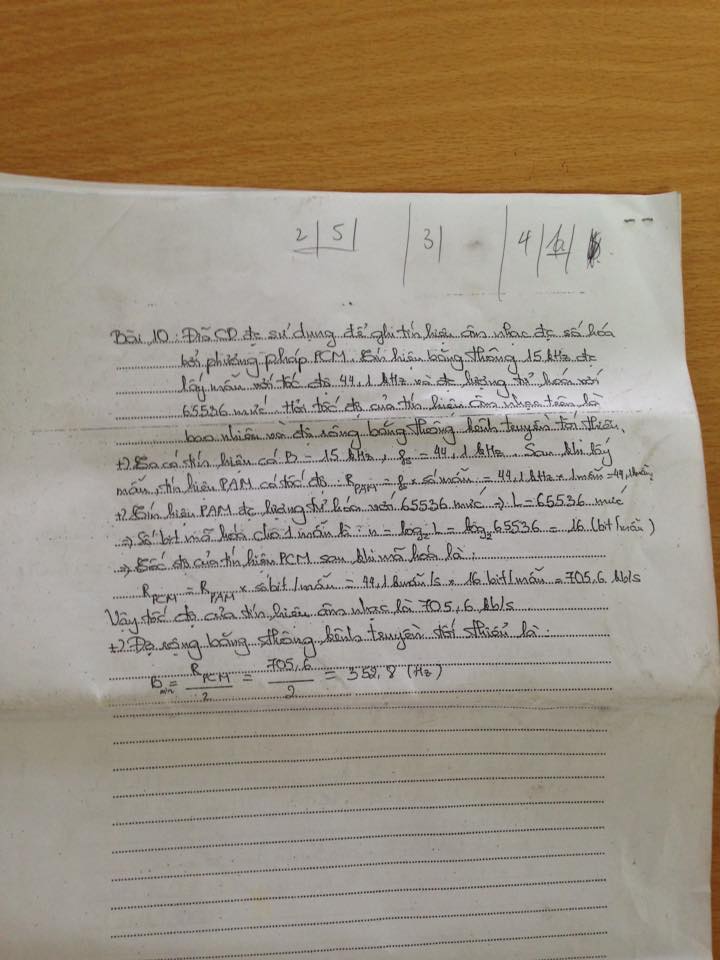 2 | 5 | | 3 | | 4 | 1a |
Bài 10 : Đĩa CD đc sử dụng để ghi tín hiệu âm nhạc đc số hóa
bởi phương pháp PCM. Tín hiệu băng thông 15 kHz đc
lấy mẫu với tốc độ 44,1 kHz và đc lượng tử hóa với
65536 mức. Hỏi tốc độ của tín hiệu âm nhạc trên là
bao nhiêu và độ rộng băng thông kênh truyền tối thiểu.
+) Ta có tín hiệu có B = 15 kHz, fs = 44,1 kHz. Sau khi lấy
mẫu, tín hiệu PAM có tốc độ : R_PAM = fs × số mẫu = 44,1 kHz × 1 mẫu = 44,1
+) Tín hiệu PAM đc lượng tử hóa với 65536 mức ⇒ L = 65536 mức
⇒ Số bit mã hóa cho 1 mẫu là : n = log₂ L = log₂ 65536 = 16 (bit/mẫu)
⇒ Tốc độ của tín hiệu PCM sau khi mã hóa là :
R_PCM = R_PAM × số bit/mẫu = 44,1 kmẫu/s × 16 bit/mẫu = 705,6 kb/s
Vậy tốc độ của tín hiệu âm nhạc là 705,6 kb/s
+) Độ rộng băng thông kênh truyền tối thiểu là :
B_min = R_PCM / 2 = 705,6 / 2 = 352,8 (Hz)